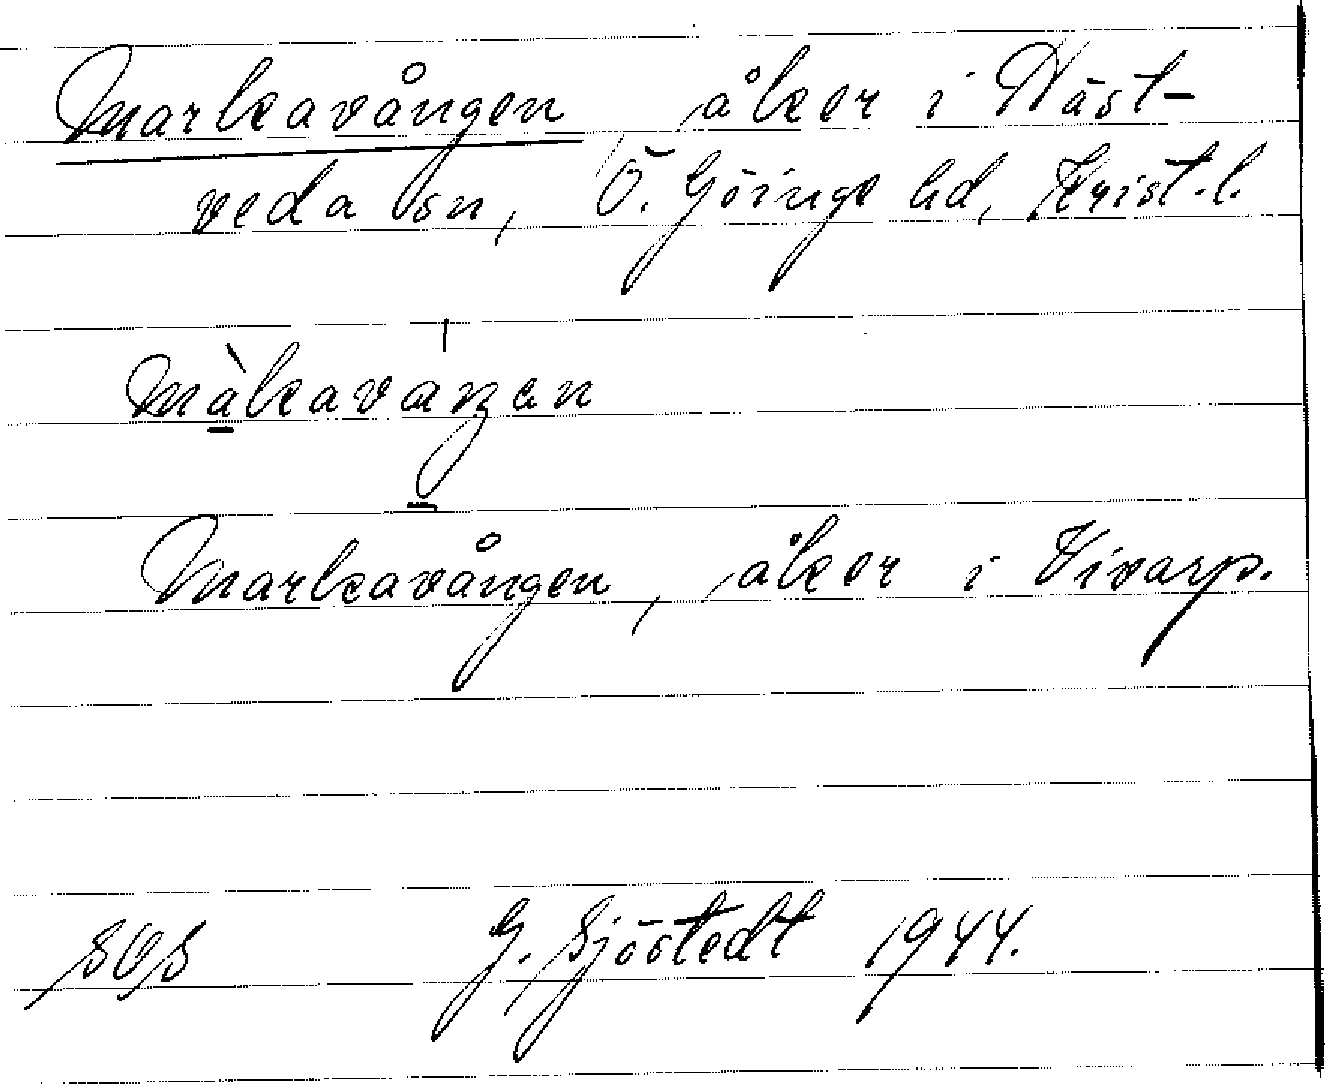 Markavången åker i Häst-
veda sn, Ö. Göinge hd, Krist. l.
Markavången, åker i Vivarp.
SOS G. Sjöstedt 1944.